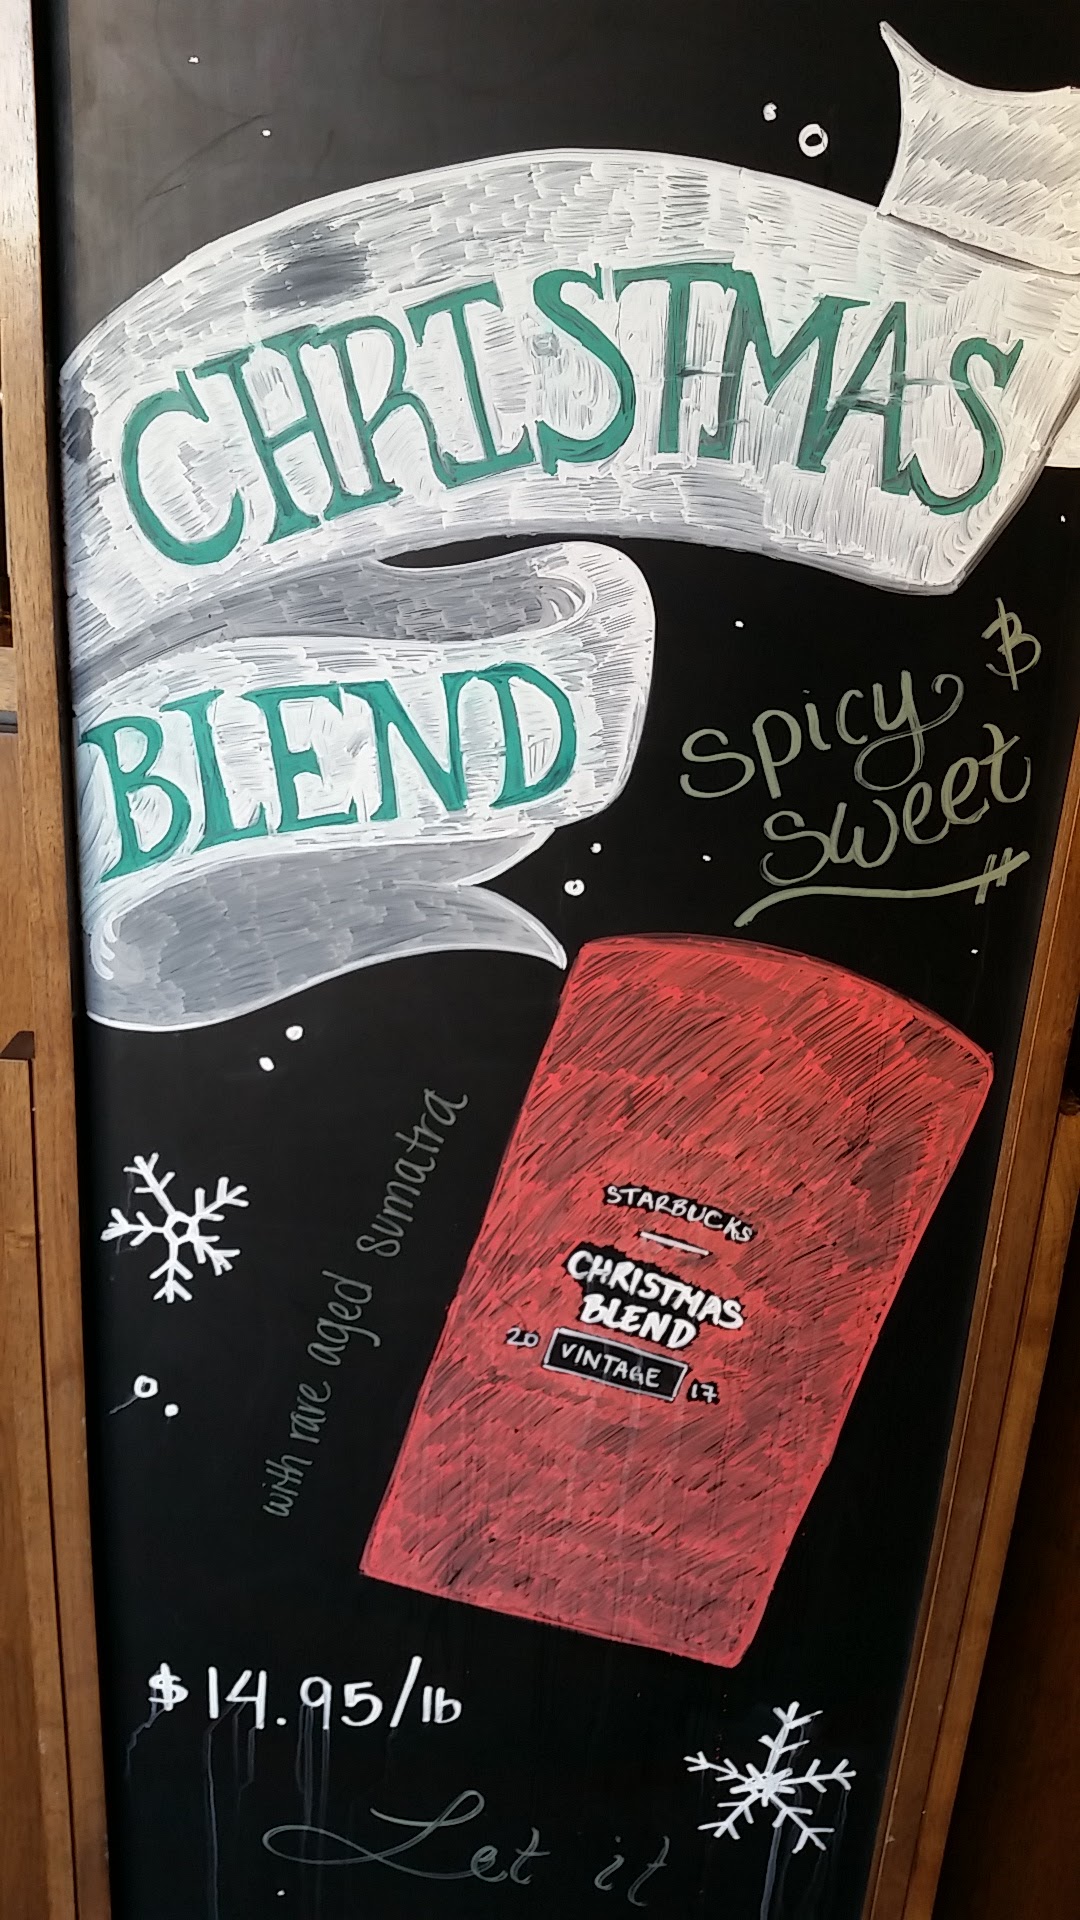 CHRISTMAS
BLEND
Spicy &
Sweet
with rare aged Sumatra
STARBUCKS
CHRISTMAS
BLEND
20 VINTAGE 17
$14.95/lb
Let it